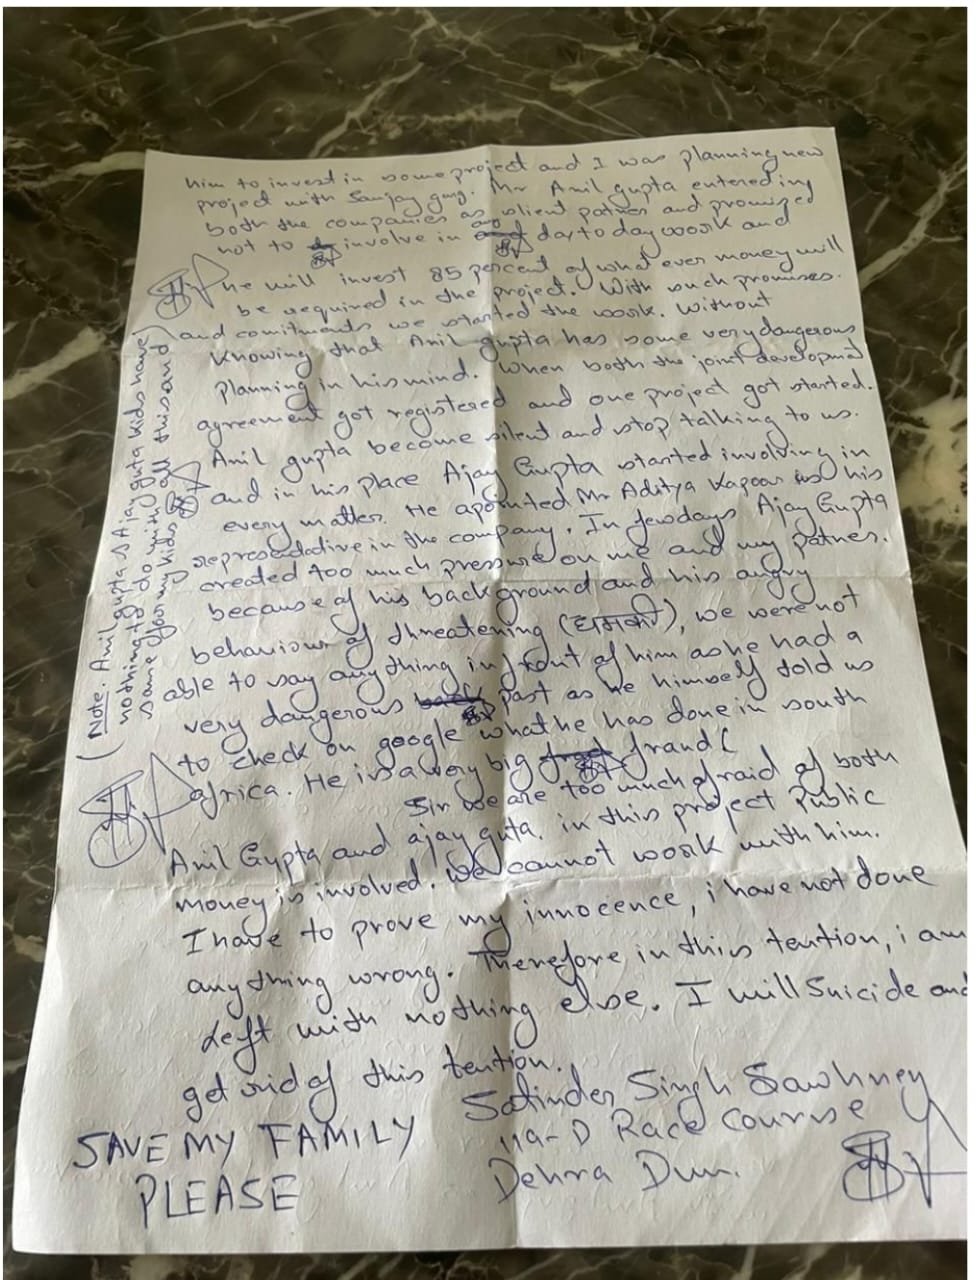 him to invest in some project and I was planning new
project with Sanjay garg. Mr Anil gupta entered in
both the companies as silent patner and promized
not to involve in day to day work and
he will invest 85 percent of what ever money will
be required in the project. With such promises
and comitments we started the work. Without
Knowing that Anil gupta has some very dangerous
planning in his mind. When both the joint developmd
agreement got registered and one project got started.
Anil gupta become silent and stop talking to us.
and in his place Ajay Gupta started involving in
every matter. He apointed Mr Aditya Kapoor as his
representative in the company. In few days Ajay Gupta
created too much pressure on me and my patner.
because of his back ground and his angry
behaviour of threatening (धमकी), we were not
able to say any thing in frout of him as he had a
very dangerous past as he himself told us
to check on google what he has done in south
africa. He is a very big fraud (
Sir we are too much afraid of both
Anil Gypta and ajay guta. in this project Public
money is involved. We cannot work with him.
I have to prove my innocence, i have not done
any thing wrong. Therefore in this tention, i am
left with nothing else. I will Suicide and
get rid of this tention.
Satinder Singh Sawhney
119-D Race Course
Dehra Dun.
SAVE MY FAMILY
PLEASE
(Note: Anil gupta & Ajay guta kids have)
nothing to do with all this and
same for my kids